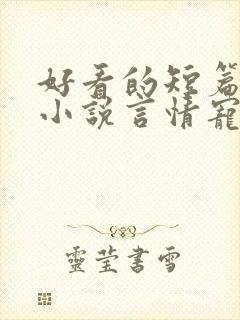 好看的短篇
小说言情宠
靈莹書雪